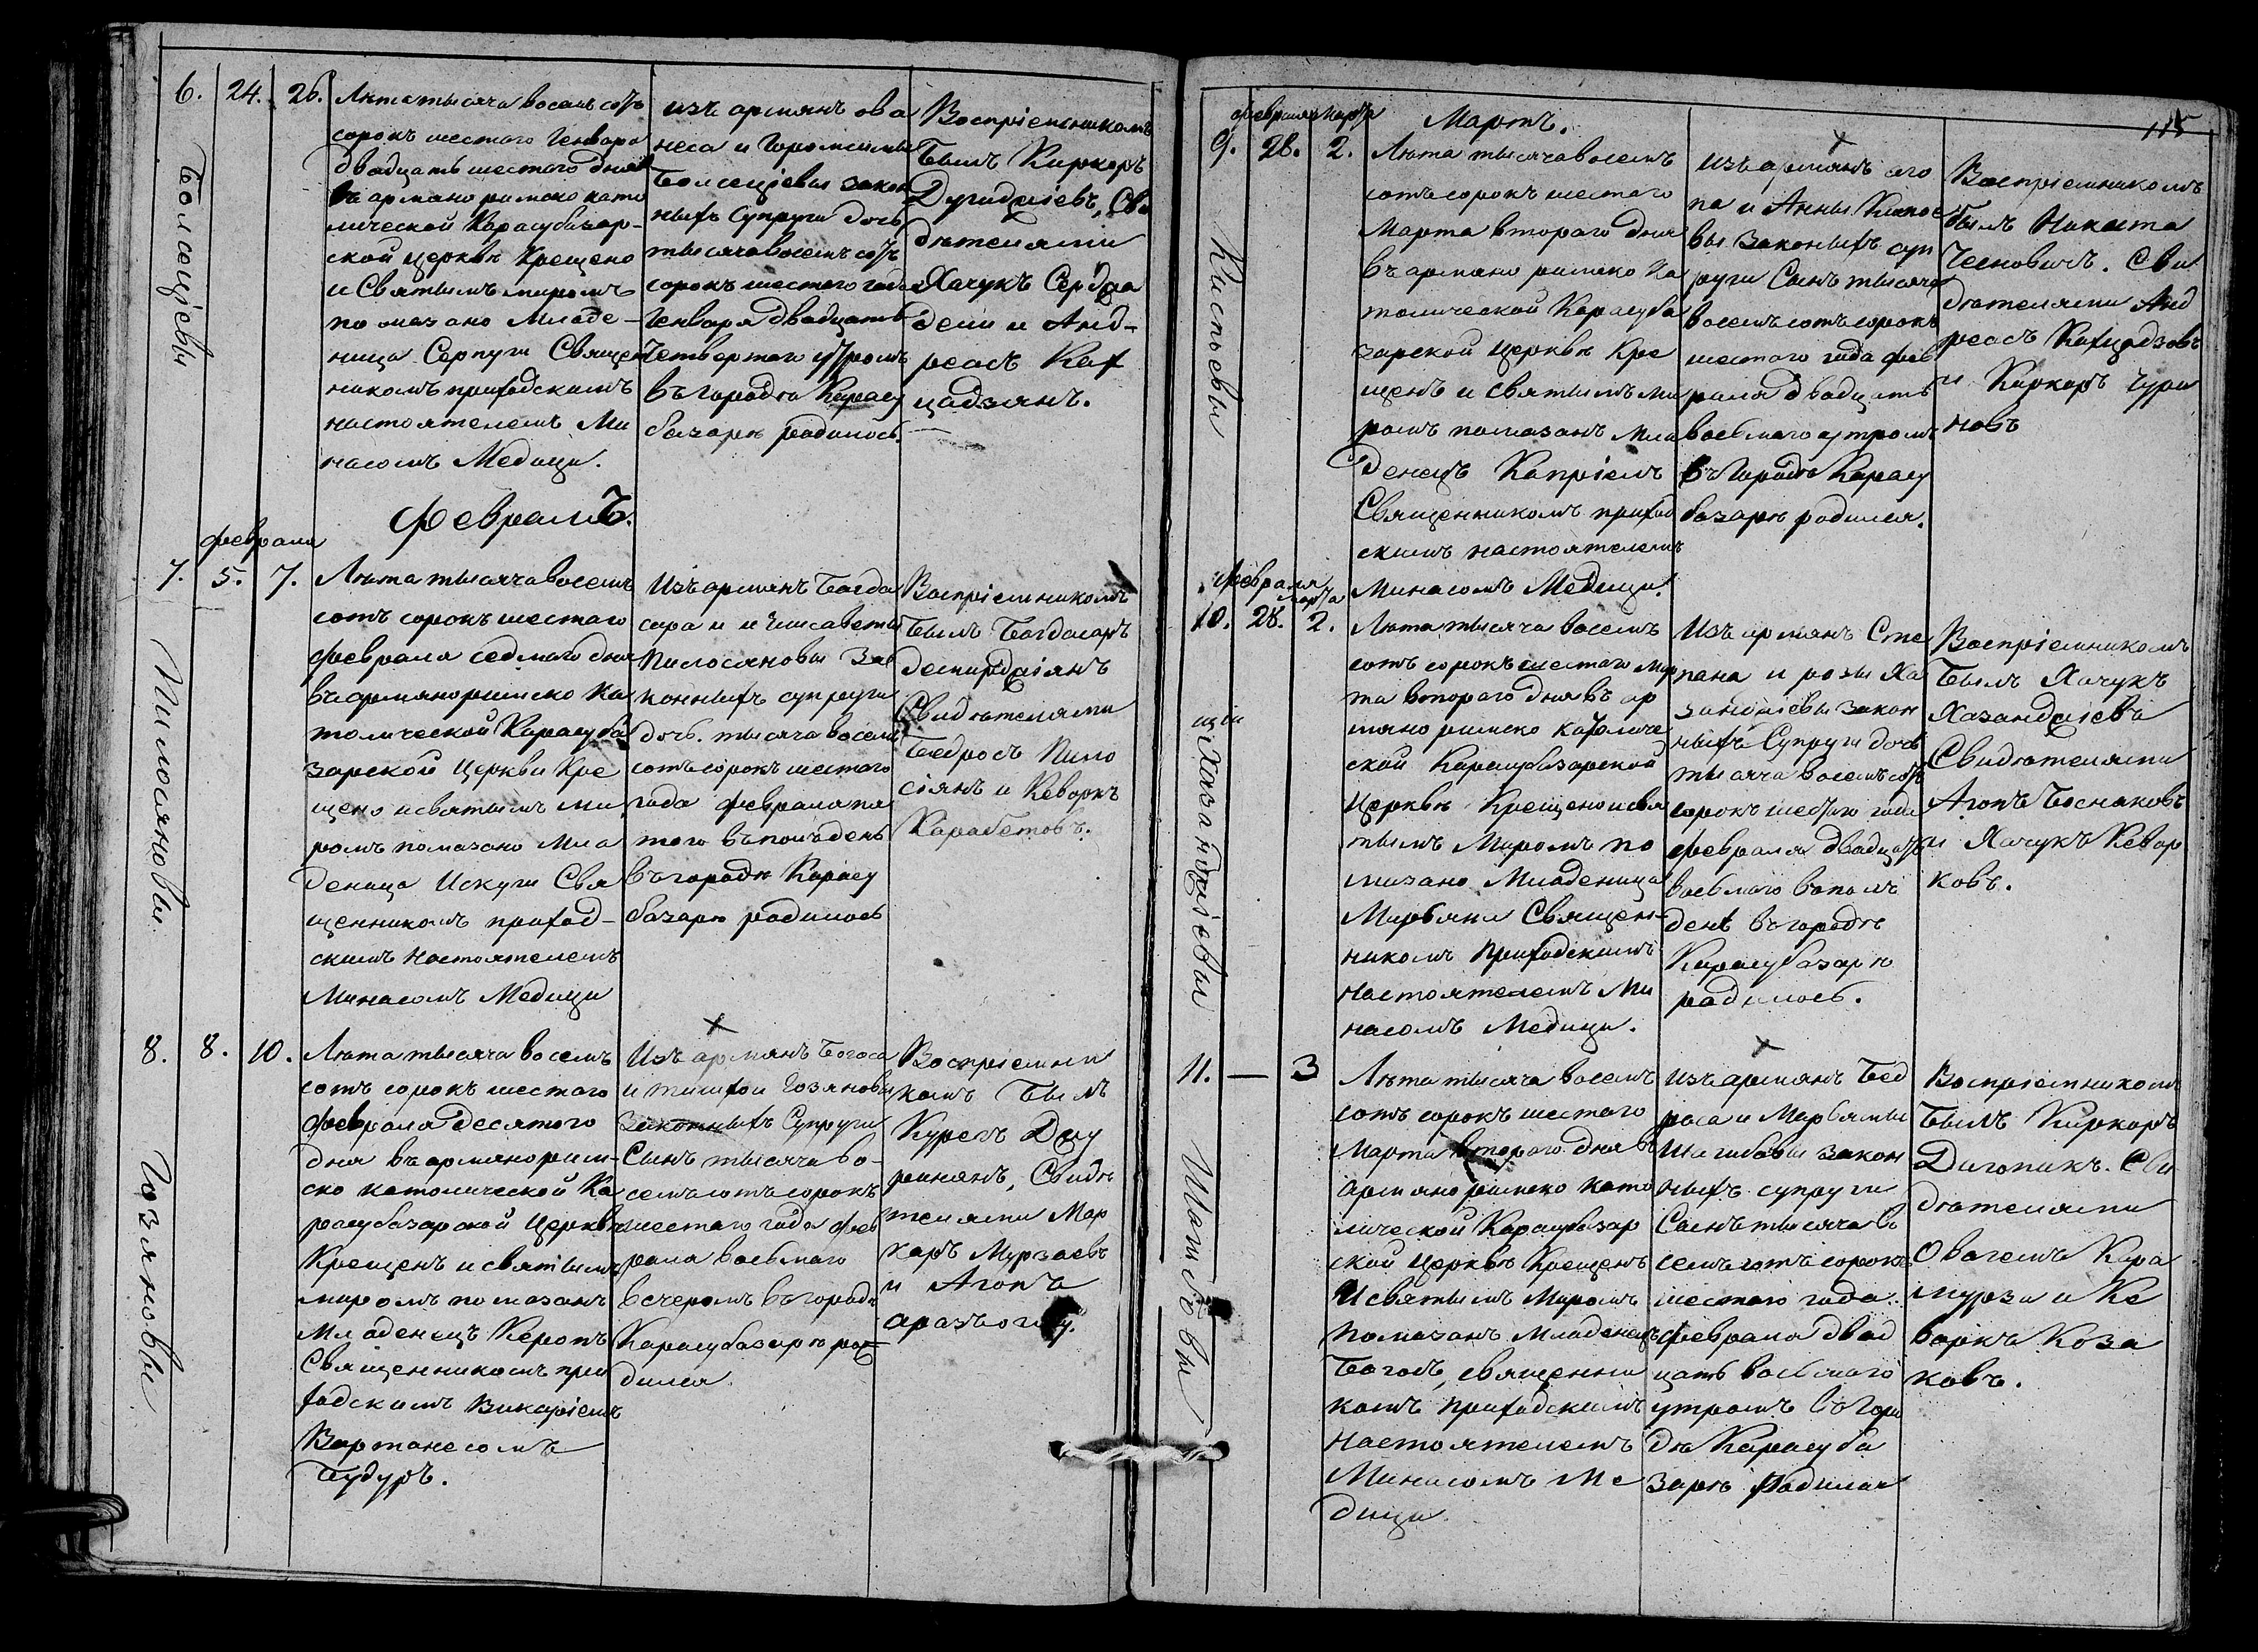 6. 24. 26.
Лѣта тысяча восемь сотъ
сорокъ шестого Генваря
двадцать шестого дня
въ армяно римско като
лической Карасубазар-
ской церквѣ Крещено
и Святымъ миромъ
помазано Младе-
ница Серпуги Священ
никомъ приходскимъ
настоятелемъ Ми
насомъ Медици.
изъ армянъ Ова
неса и
законныхъ Супруги дочь
тысяча восемь сотъ
сорокъ шестого года
Генваря двадцать
четвертаго утромъ
въ городѣ Карасу
базарѣ родилось.
Воспріемникомъ
былъ Киркоръ
Сви
дѣтелями
Хачукъ
и Анд-
реасъ Ках
цадзянъ.
Февраль.
Февраля
7. 5. 7.
Пилосяновы
Лѣта тысяча восемь
сотъ сорокъ шестаго
февраля седмаго дня
въ армяно римско ка
толической Карасуба
зарской Церкви Кре
щено и святымъ ми
ромъ помазано Мла
деница Искуги Свя
щенникомъ приход-
скимъ настоятелемъ
Минасомъ Медици
Изъ армянъ Багда
сара и Елисаветы
Пилосяновы За
конныхъ супруги
дочь. тысяча восемь
сотъ сорокъ шестого
года февраля пя
таго въ полъдень
въ городѣ Карасу
базарѣ родилось
Воспріемникомъ
былъ Багдасаръ
Демирджіянъ
Свидѣтелями
Бедросъ Пило
сіянъ и Кеворкъ
Карабетовъ.
8. 8. 10.
Гозяновы
Лѣта тысяча восемь
сотъ сорокъ шестого
февраля десятого
дня въ армяно рим-
ско католической Ка
расубазарской Церквѣ
Крещенъ и святымъ
миромъ помазанъ
Младенецъ Керопъ
Священникомъ при
ходскимъ викаріемъ
Вартанесомъ
Будуръ.
Изъ армянъ Богоса
и Гозяновы
Законныхъ Супруги
Сынъ тысяча во-
семь сотъ сорокъ
шестаго года фев
раля восьмаго
вечеромъ въ городѣ
Карасубазарѣ ро
дился
Воспріемни
комъ былъ
Курегъ
Свидѣ
телями Мар
каръ Мурзаевъ
и Агопъ
115
Мартъ.
Февраля Марта
9. 28. 2.
Киспевы
Лѣта тысяча восемь
сотъ сорокъ шестаго
Марта второго дня
въ армяно римско ка
толической Карасуба
зарской Церквѣ Кре
щенъ и святымъ ми
ромъ помазанъ Мла
денецъ Капріелъ
Священникомъ приход
скимъ настоятелемъ
Минасомъ Медици.
Изъ армянъ Аго
па и Анны Киспе
вы Законыхъ суп
руги Сынъ тысяча
восемь сотъ сорокъ
шестого года фев
раля двадцать
восьмаго утромъ
въ Городѣ Карасу
базарѣ родился.
Воспріемникомъ
былъ Никита
Чесновичъ. Сви
дѣтелями Анд
реасъ Кахцадзовъ
и Киркоръ Чури
новъ
Февраля Марта
10. 28. 2.
Хазанджіевы
Лѣта тысяча восемь
сотъ сорокъ шестаго Мар
та второго дня въ ар
мяно римско католиче
ской Карасубазарской
Церквѣ Крещено и свя
тымъ Миромъ по
мазано Младеница
Марьяна Священ
никомъ Приходскимъ
Настоятелемъ Ми
насомъ Медици.
Изъ армянъ Сте
пана и розы Ха
занджіевы закон
ныхъ Супруги дочь
тысяча восемь сотъ
сорокъ шестаго года
февраля двадцать
восьмаго въ полъ
день въ городѣ
Карасубазарѣ
родилось.
Воспріемникомъ
былъ Хачукъ
Хазанджіевъ
Свидѣтелями
Агопъ Босняковъ
и Хачукъ Кевор
ковъ.
11. — 3
Шагибовы
Лѣта тысяча восемь
сотъ сорокъ шестаго
Марта второго дня въ
армяно римско като
лической Карасубазар
ской Церквѣ Крещенъ
И святымъ Миромъ
помазанъ младенецъ
Богосъ, священни
комъ приходскимъ
настоятелемъ
Минасомъ Ме
дици.
Изъ армянъ Бед
роса и Марьямы
Шагибовы закон
ныхъ супруги
Сынъ тысяча во
семь сотъ сорокъ
шестого года.
февраля двад
цать восьмаго
утромъ въ Горо
дѣ Карасуба
зарѣ родился
Воспріемникомъ
былъ Киркоръ
Сви
дѣтелями
Овагемъ Кара
мурза и Ке
воркъ Коза
ковъ.